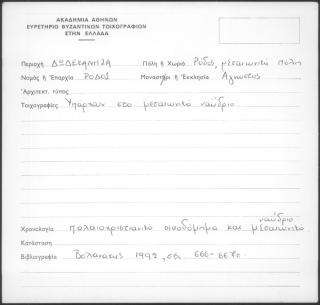 ΑΚΑΔΗΜΙΑ ΑΘΗΝΩΝ
ΕΥΡΕΤΗΡΙΟ ΒΥΖΑΝΤΙΝΩΝ ΤΟΙΧΟΓΡΑΦΙΩΝ
ΣΤΗΝ ΕΛΛΑΔΑ
Περιοχή ΔΩΔΕΚΑΝΗΣΑ Πόλη ή Χωριό Ρόδος, μεσαιωνική πόλη
Νομός ή Επαρχία ΡΟΔΟΣ Μοναστήρι ή Εκκλησία Άγνωστος
Αρχιτεκτ. τύπος
Τοιχογραφίες Υπάρχουν στο μεσαιωνικό ναΰδριο.
ναΰδριο
Χρονολογία παλαιοχριστιανικό οικοδόμημα και μεσαιωνικό
Κατάσταση
Βιβλιογραφία Βολανάκης 1992, σελ. 666-667